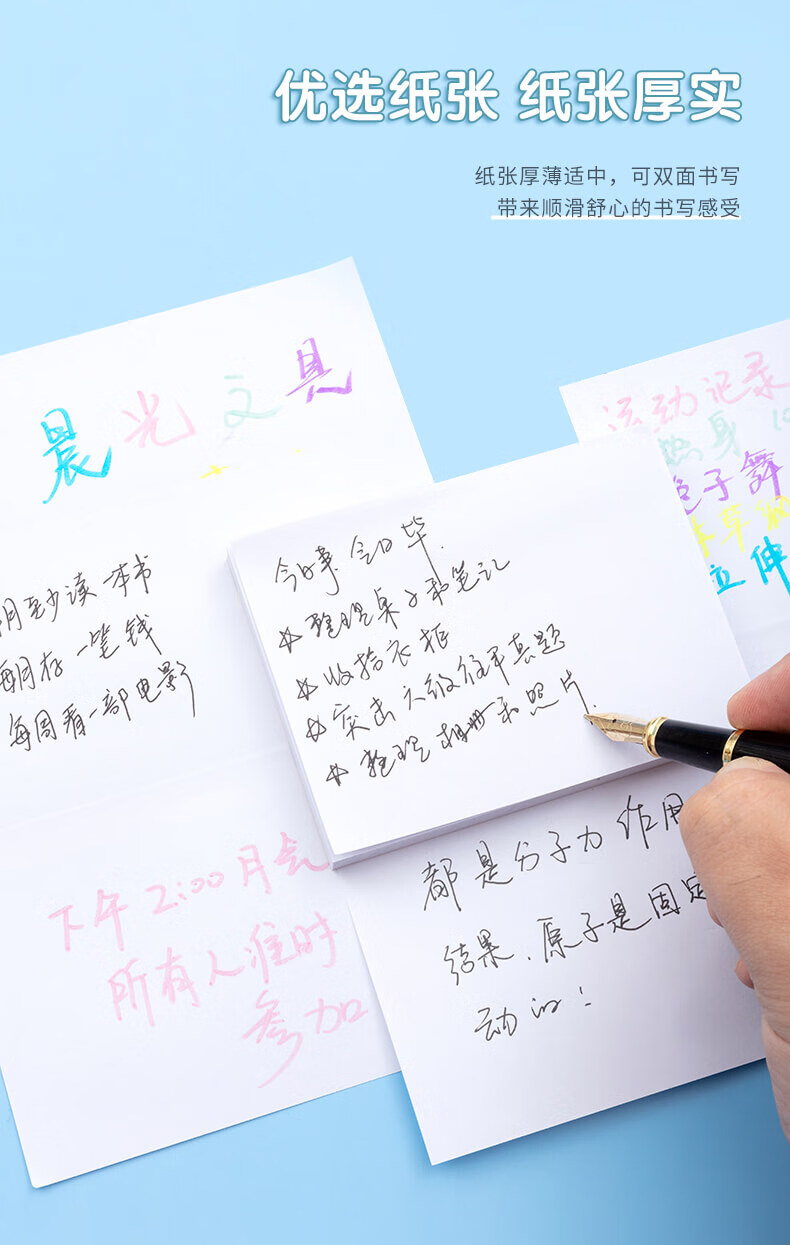 优选纸张 纸张厚实
纸张厚薄适中，可双面书写
带来顺滑舒心的书写感受
晨光文具
月至少读一本书
每月存一笔钱
每周看一部电影
运动记录
热身 10
绳子舞
拉伸
今日事 今日毕.
整理桌子和笔记
收拾衣柜
突击六级历年真题
整理相册和照片.
下午2:00月会
所有人准时
参加
都是分子力作用
结果.原子是固定
动的！